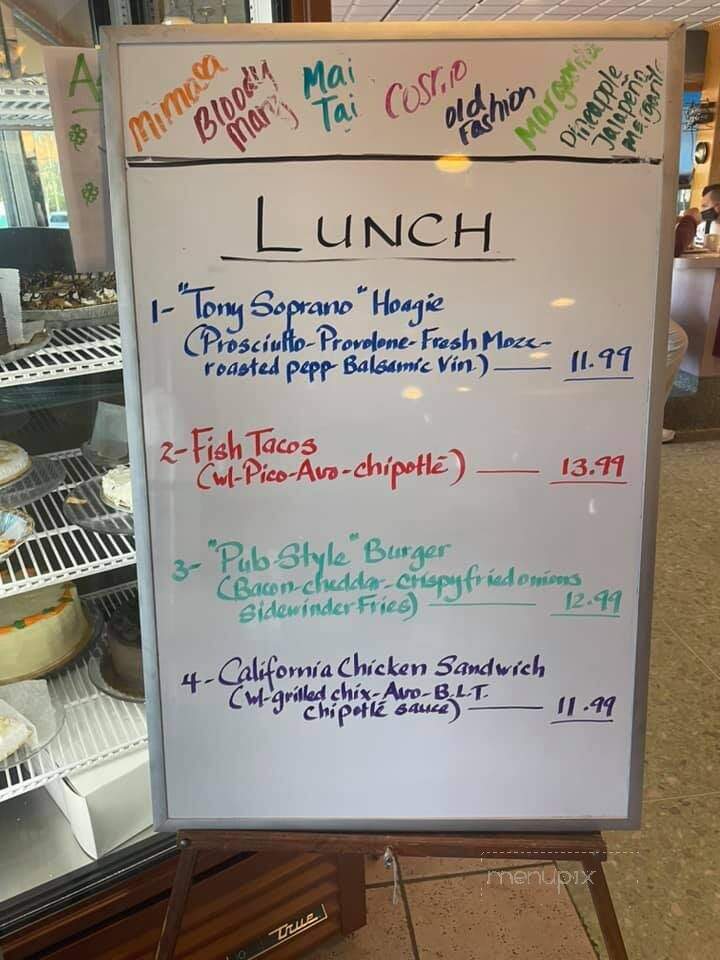 Mimosa
Bloody
Mary
Mai
Tai
Old
Fashion
Pineapple
Jalapeño
LUNCH
1- "Tony Soprano" Hoagie
(Prosciutto-Provolone-Fresh Mozz-
roasted pepp-Balsamic Vin.) 11.99
2- Fish Tacos
(w/-Pico-Avo-chipotlé) 13.99
3- "Pub-Style" Burger
(Bacon-cheddar-crispy fried onions
Sidewinder Fries) 12.99
4- California Chicken Sandwich
(w/-grilled chix-Avo-B.L.T.
Chipotlé sauce) 11.99
True
menupix